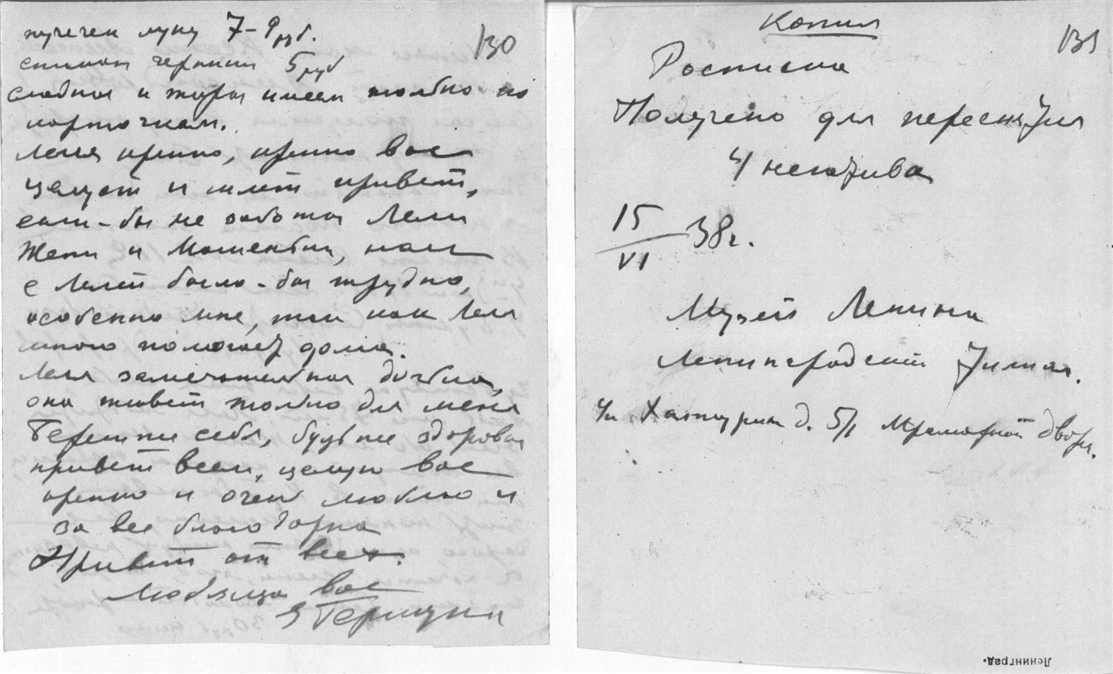 130
пучечек луку 7-8 руб.
стакан черники 5 руб
сладкое и жиры имеем только по
карточкам.
Леля крепко, крепко вас
целует и шлет привет,
если-бы не забота Лели
Жени и Машеньки, нам
с Лелей было-бы трудно,
особенно мне, так как Леля
много помогает дома.
Леля замечательная дочька,
она живет только для меня
Берегите себя, будьте здоровы
привет всем, целую вас
крепко и очень люблю и
за все благодарна
Привет от всех.
Любящая вас
131
Копия
Расписка
Получено для пересъемки
4 негатива
15/VI 38 г.
Музей Ленина
Ленинградский филиал.
Ул. Халтурина д. 5/1 Мраморный дворец.
Ленинград.